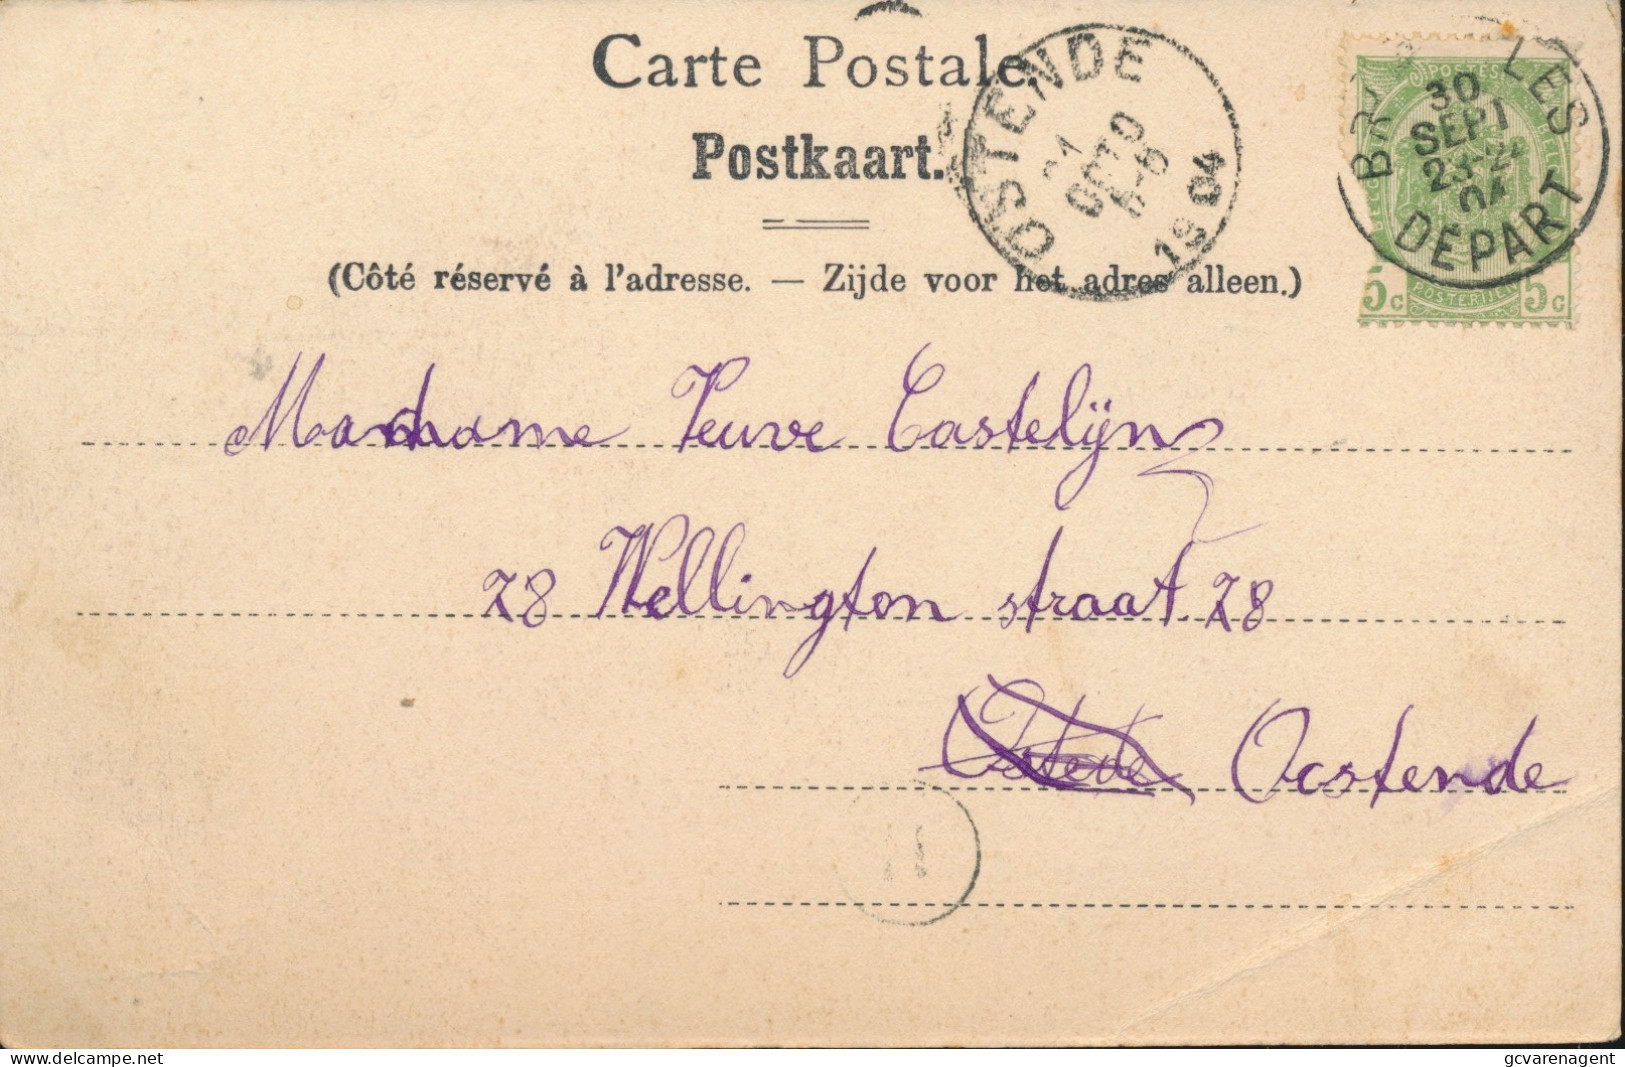 Carte Postale.
Postkaart.
(Côté réservé à l'adresse. — Zijde voor het adres alleen.)
OSTENDE
OCTO
1904
LES
30
SEPT
04
DEPART
POSTES
5c 5c
Madame Veuve Castelÿn
28 Wellington straat. 28
Oostende
11
www.delcampe.net
gcvarenagent